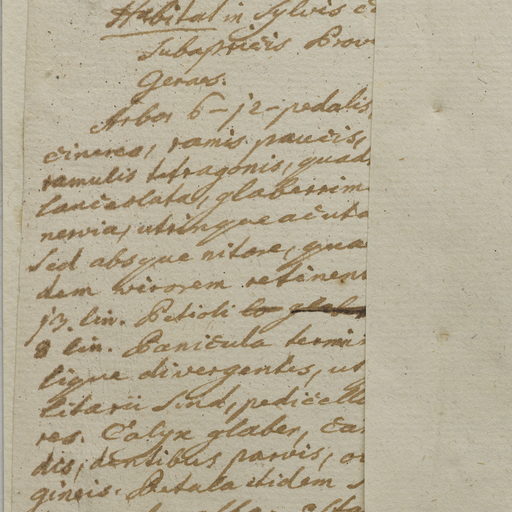 Habitat in Sylvis
Subapricis Prov
Geraes.
Arbor 6-12-pedalis
cinereo, ramis paucis,
ramulis tetragonis, quad
lanceolata, glaberrim
nervia, utrinque acuta
sed absque nitore, qua
dem virorem retinent
13. lin. Petioli
8 lin. Panicula termi
lique divergentes, ut
litarii sind, pedicell
res. Calyx glaber, ca
dis, dentibus parvis, o
gineis. Petala itidem